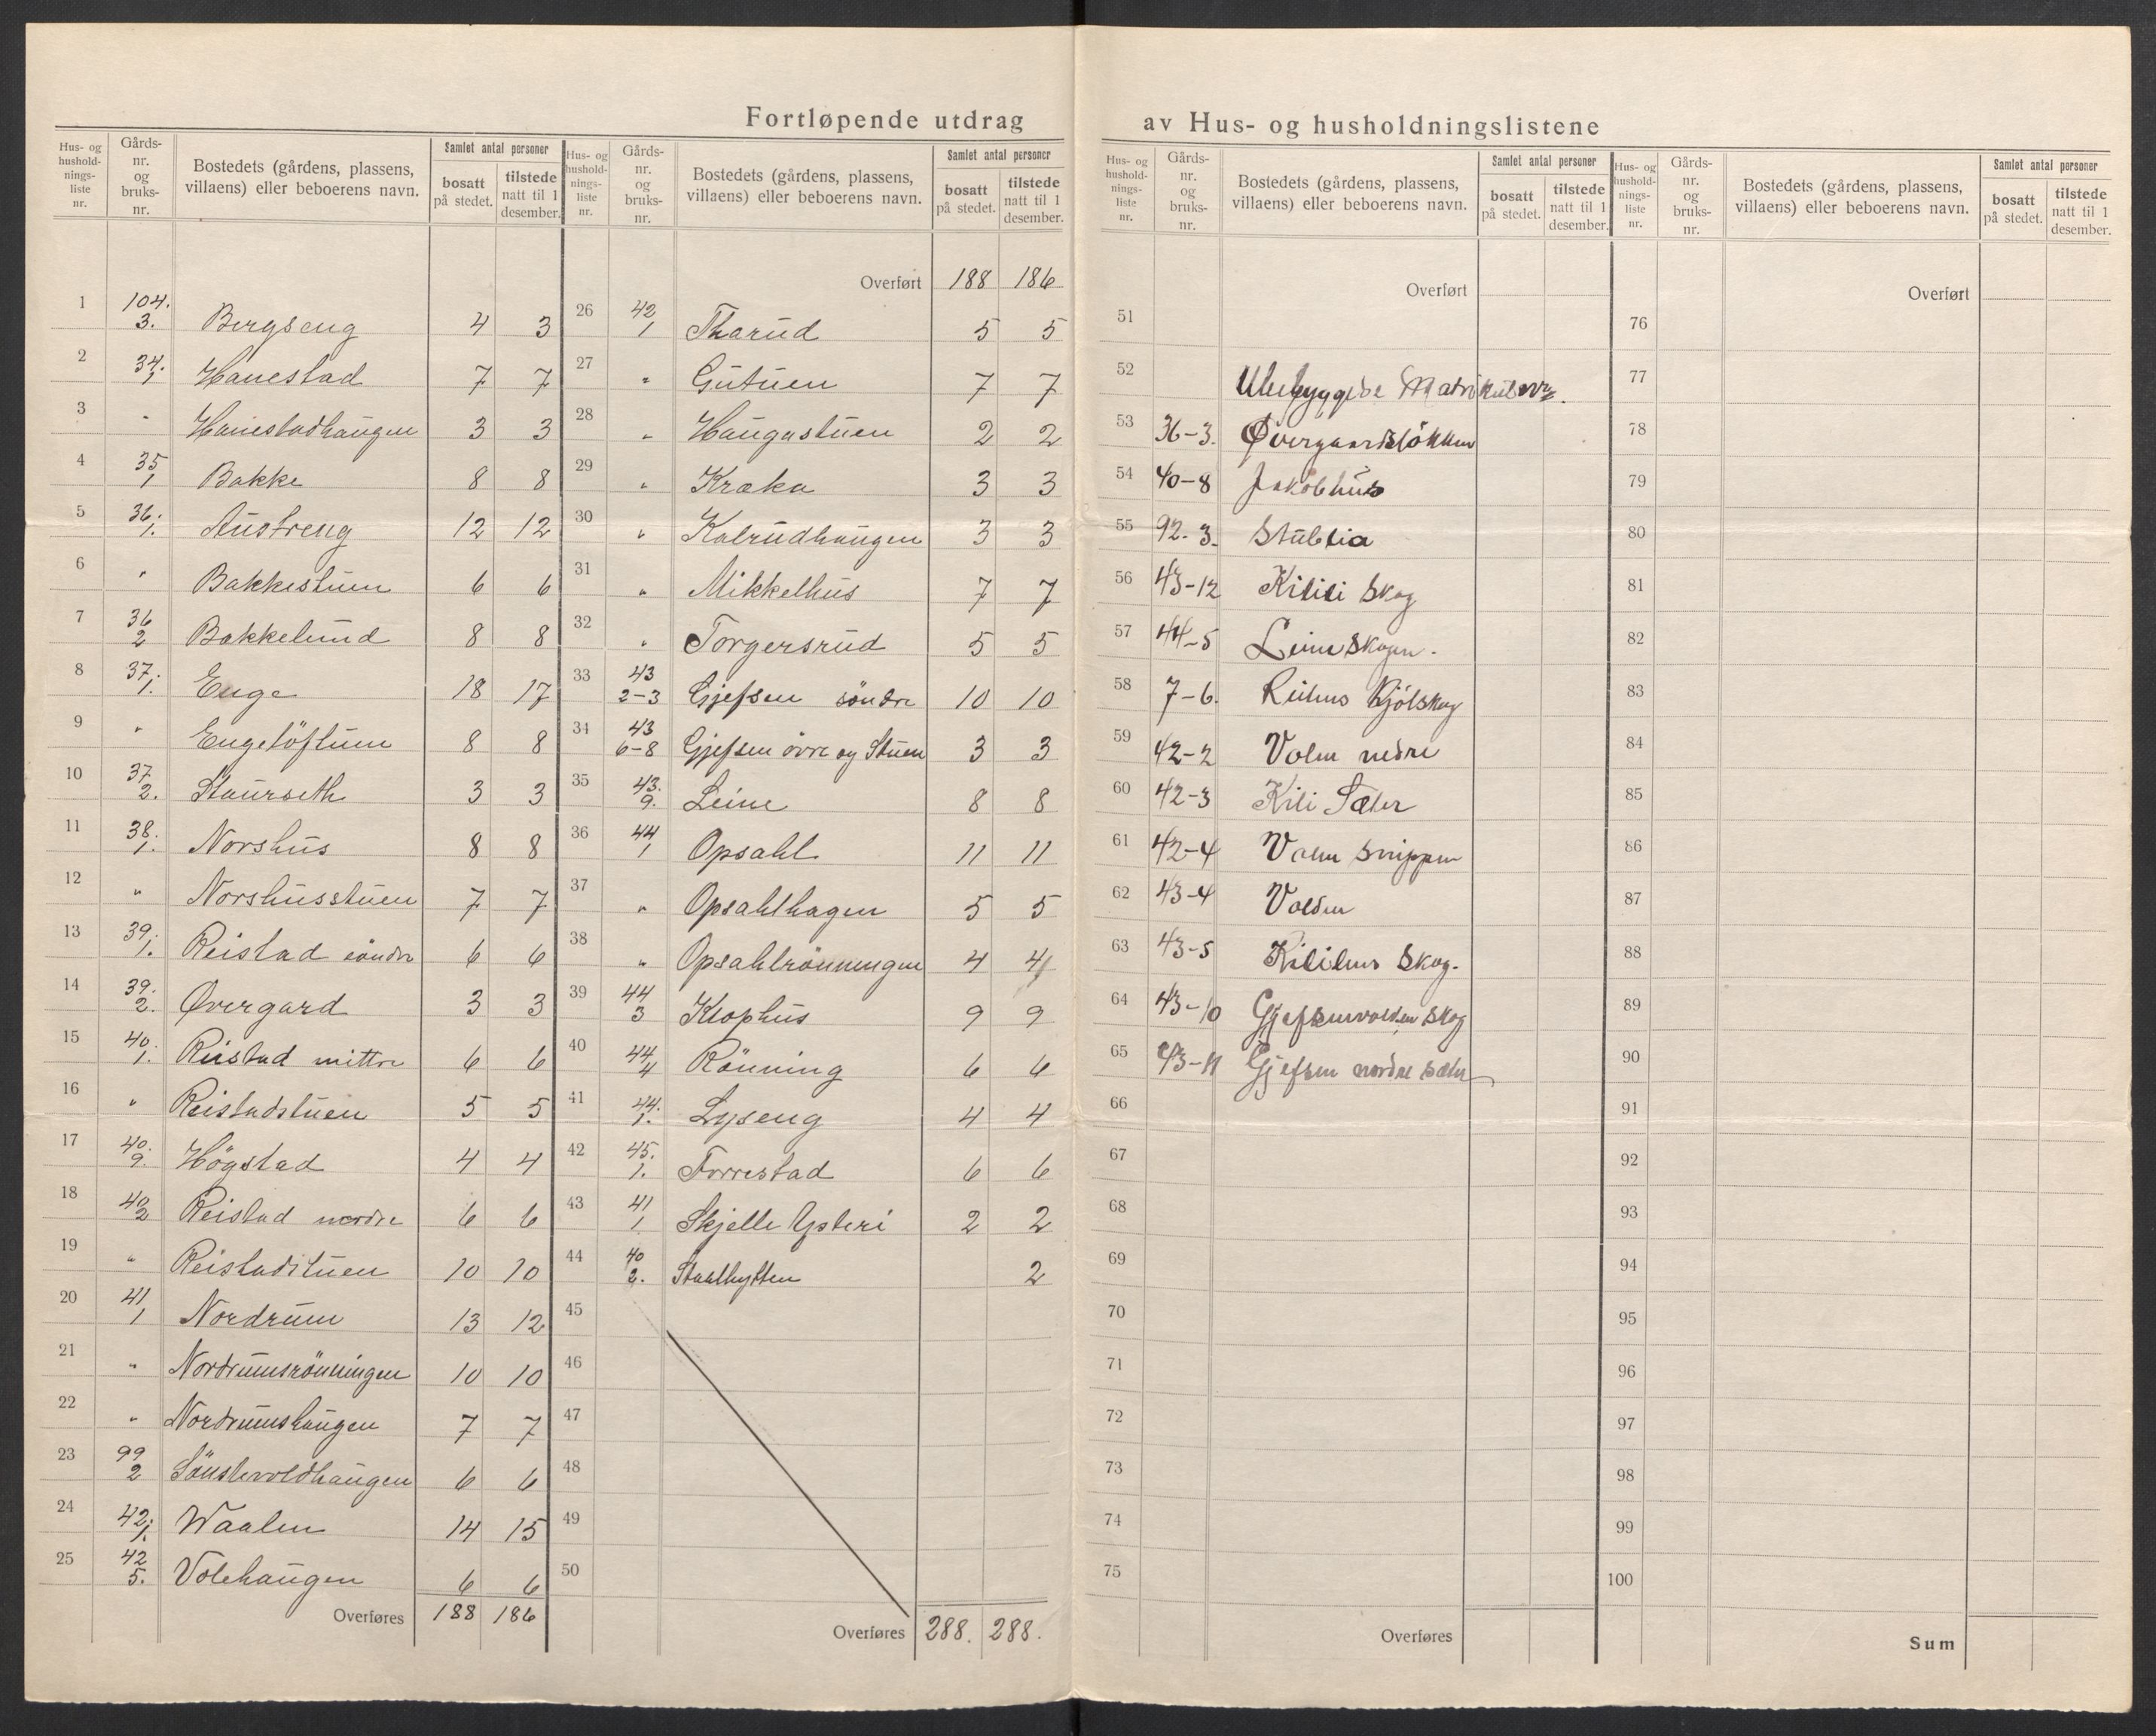 Fortløpende utdrag av Hus- og husholdningslistene
Hus- og husholdningsliste nr. Gårds-nr. og bruks-nr. Bostedets (gårdens, plassens, villaens) eller beboerens navn. Samlet antal personer bosatt på stedet. tilstede natt til 1 desember.
1 104. 3. Bergseng 4 3
2 34. 1 Hanestad 7 7
3 " Hanestadhaugen 3 3
4 35 1 Bakke 8 8
5 36. 1. Austreng 12 12
6 " Bakkestuen 6 6
7 36 2 Bakkelund 8 8
8 37. 1. Enge 18 17
9 " Engeløftuen 8 8
10 37 2. Staurseth 3 3
11 38. 1. Norshus 8 8
12 " Norshusstuen 7 7
13 39. 1. Reistad söndre 6 6
14 39. 2. Øvergard 3 3
15 40. 1. Reistad mittre 6 6
16 " Reistadstuen 5 5
17 40. 9. Högstad 4 4
18 40 2 Reistad nordre 6 6
19 " Reistadstuen 10 10
20 41 1 Nordrum 13 12
21 " Nordrumsrönningen 10 10
22 " Nordrumshaugen 7 7
23 99 2 Sönstevoldhaugen 6 6
24 42. 1. Waalen 14 15
25 42 5. Volehaugen 6 6
Overføres 188 186
Hus- og husholdningsliste nr. Gårds-nr. og bruks-nr. Bostedets (gårdens, plassens, villaens) eller beboerens navn. Samlet antal personer bosatt på stedet. tilstede natt til 1 desember.
Overført 188 186
26 42 1 Tharud 5 5
27 " Gutuen 7 7
28 " Haugastuen 2 2
29 " Kræka 3 3
30 " Kalrudhaugen 3 3
31 " Mikkelhus 7 7
32 " Torgersrud 5 5
33 43 2-3 Gjefsen söndre 10 10
34 43 6-8 Gjefsen övre og Stuen 3 3
35 43. 9. Leine 8 8
36 44 1 Opsahl 11 11
37 " Opsahlhagen 5 5
38 " Opsahlrönningen 4 4
39 44 3 Klophus 9 9
40 44 4 Rönning 6 6
41 44. 1. Lyseng 4 4
42 45. 1. Forrestad 6 6
43 41 1 Skjelle Ysteri 2 2
44 40 2. Staalhytten 2
45
46
47
48
49
50
Overføres 288. 288.
Hus- og husholdningsliste nr. Gårds-nr. og bruks-nr. Bostedets (gårdens, plassens, villaens) eller beboerens navn. Samlet antal personer bosatt på stedet. tilstede natt til 1 desember.
Overført
51
52 Ubebyggede Matrikulnr.
53 36-3. Øvergaardsløkken
54 40-8 Jakobhus
55 92-3. Stublia
56 43-12 Kilili Skog
57 44-5 Leine Skogen.
58 7-6. Kjølskog
59 42-2 Volen nedre
60 42-3 Kili Sæter
61 42-4 Volen Snippen
62 43-4 Volden
63 43-5 Skog.
64 43-10 Gjefsenvolden Skog
65 43-11 Gjefsen nordre Sæter
66
67
68
69
70
71
72
73
74
75
Overføres
Hus- og husholdningsliste nr. Gårds-nr. og bruks-nr. Bostedets (gårdens, plassens, villaens) eller beboerens navn. Samlet antal personer bosatt på stedet. tilstede natt til 1 desember.
Overført
76
77
78
79
80
81
82
83
84
85
86
87
88
89
90
91
92
93
94
95
96
97
98
99
100
Sum